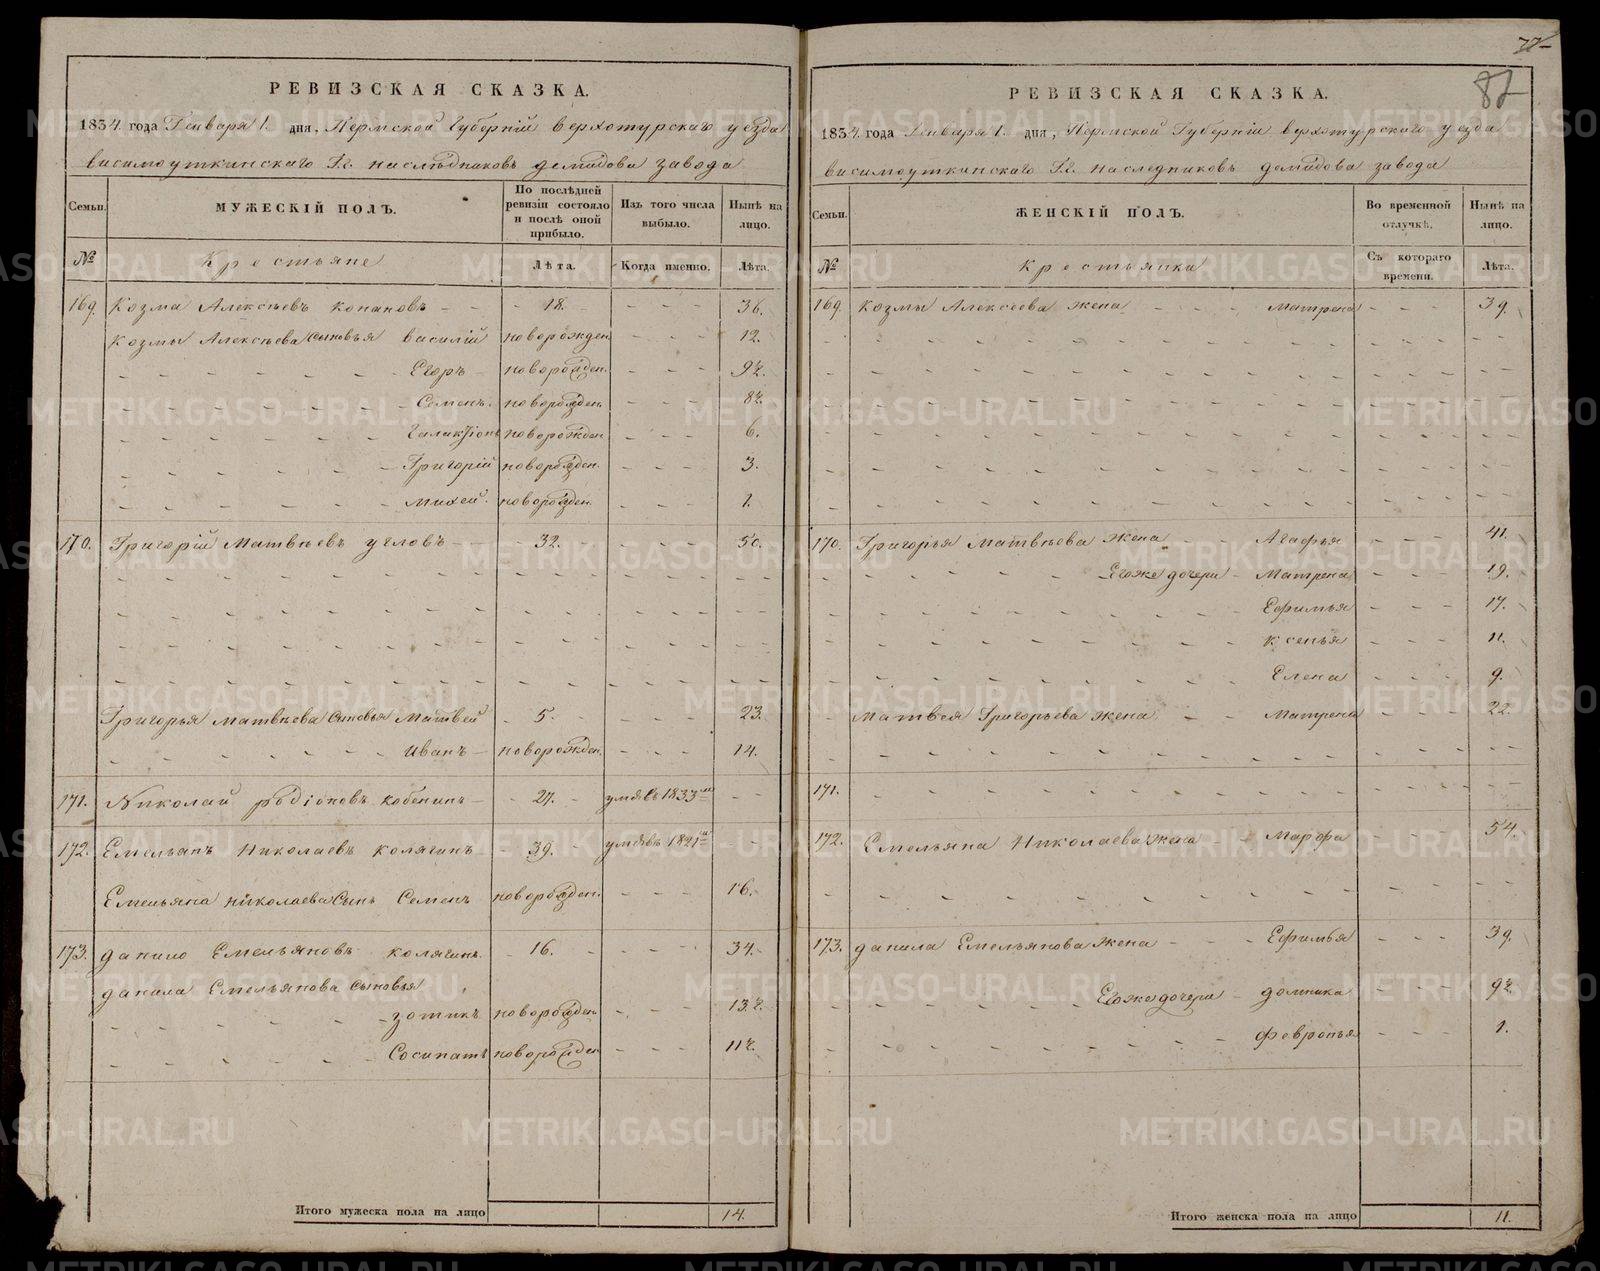 77
87
РЕВИЗСКАЯ СКАЗКА.
1834. года Генваря 1. дня, Пермской Губерніи верхотурскаго уезда
висимоуткинскаго Гг. наслѣдниковъ демидова завода
Семьи.
МУЖЕСКІЙ ПОЛЪ.
По послѣдней ревизіи состояло и послѣ оной прибыло.
Изъ того числа выбыло.
Нынѣ на лицо.
№
Крестьяне
Лѣта.
Когда именно.
Лѣта.
169. Козма Алексѣевъ копановъ 18. 36.
Козмы Алексѣева сыновья василій новорожден. 12.
Егоръ новорожден. 9 1/2.
Семенъ. новорожден. 8 1/2.
Галактіонъ новорожден. 6.
Григорій новорожден. 3.
михей. новорожден. 1.
170. Григорій Матвѣевъ угловъ 32. 50.
Григорья матвѣева сыновья Матвей 5. 23.
Иванъ новорожден. 14.
171. Николай родіоновъ кобенинъ 27. умре въ 1833м
172. Емельянъ Николаевъ колягинъ 39. умре въ 1821м
Емельяна николаева сынъ Семенъ новорожден. 16.
173. данило Емельяновъ колягинъ. 16. 34.
данила Емельянова сыновья
зотикъ новорожден. 13 1/2.
Сосипатъ новорожден 11 1/2.
Итого мужеска пола на лицо 14.
РЕВИЗСКАЯ СКАЗКА.
1834. года Генваря 1. дня, Пермской Губерніи верхотурскаго уезда
висимоуткинскаго Гг. наследниковъ демидова завода
Семьи.
ЖЕНСКІЙ ПОЛЪ.
Во временной отлучкѣ.
Нынѣ на лицо.
№
Крестьянки
Съ котораго времени.
Лѣта.
169. Козмы Алексеева жена Матрена 39.
170. Григорья Матвѣева жена Агафья 41.
Егоже дочери Матрена 19.
Ефимья 17.
ксенья 11.
Елена 9.
матвея Григорьева жена Матрена 22.
171.
172. Емельяна Николаева жена Марфа 54.
173. данила Емельянова жена Ефимья 39.
Егоже дочери домника 9 1/2
февронья 1.
Итого женска пола на лицо 11.
METRIKI.GASO-URAL.RU